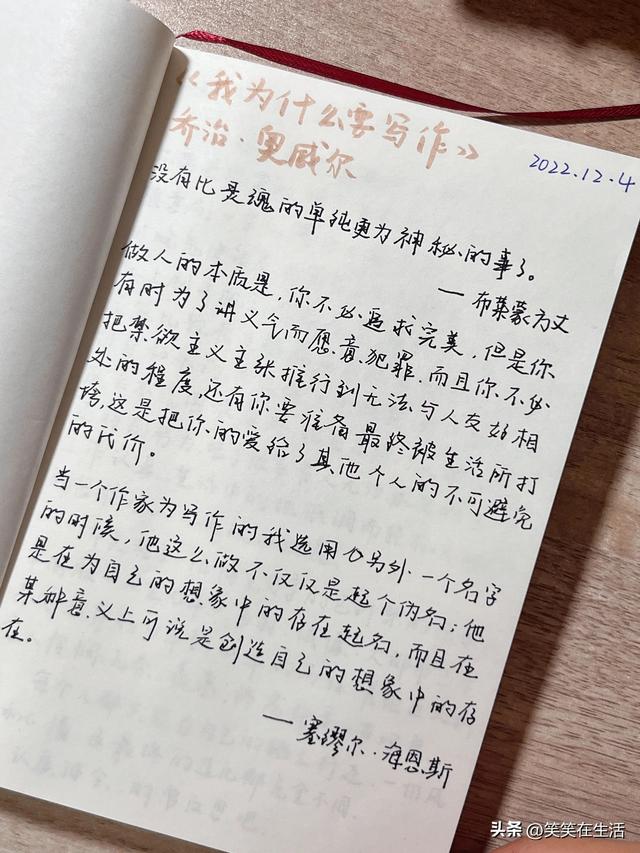 《我为什么要写作》
乔治·奥威尔
2022.12.4
没有比灵魂的单纯更为神秘的事了。
——布莱蒙方丈
做人的本质是，你不必追求完美，但是你
有时为了讲义气而愿意犯罪，而且你不必
把禁欲主义主张推行到无法与人友好相
处的程度，还有你要准备最终被生活所打
垮，这是把你的爱给了其他个人的不可避免
的代价。
当一个作家为写作的我选用另外一个名字
的时候，他这么做不仅仅是起个伪名；他
是在为自己的想象中的存在起名，而且在
某种意义上可说是创造自己的想象中的存
在。
——塞缪尔·海恩斯
头条 @笑笑在生活